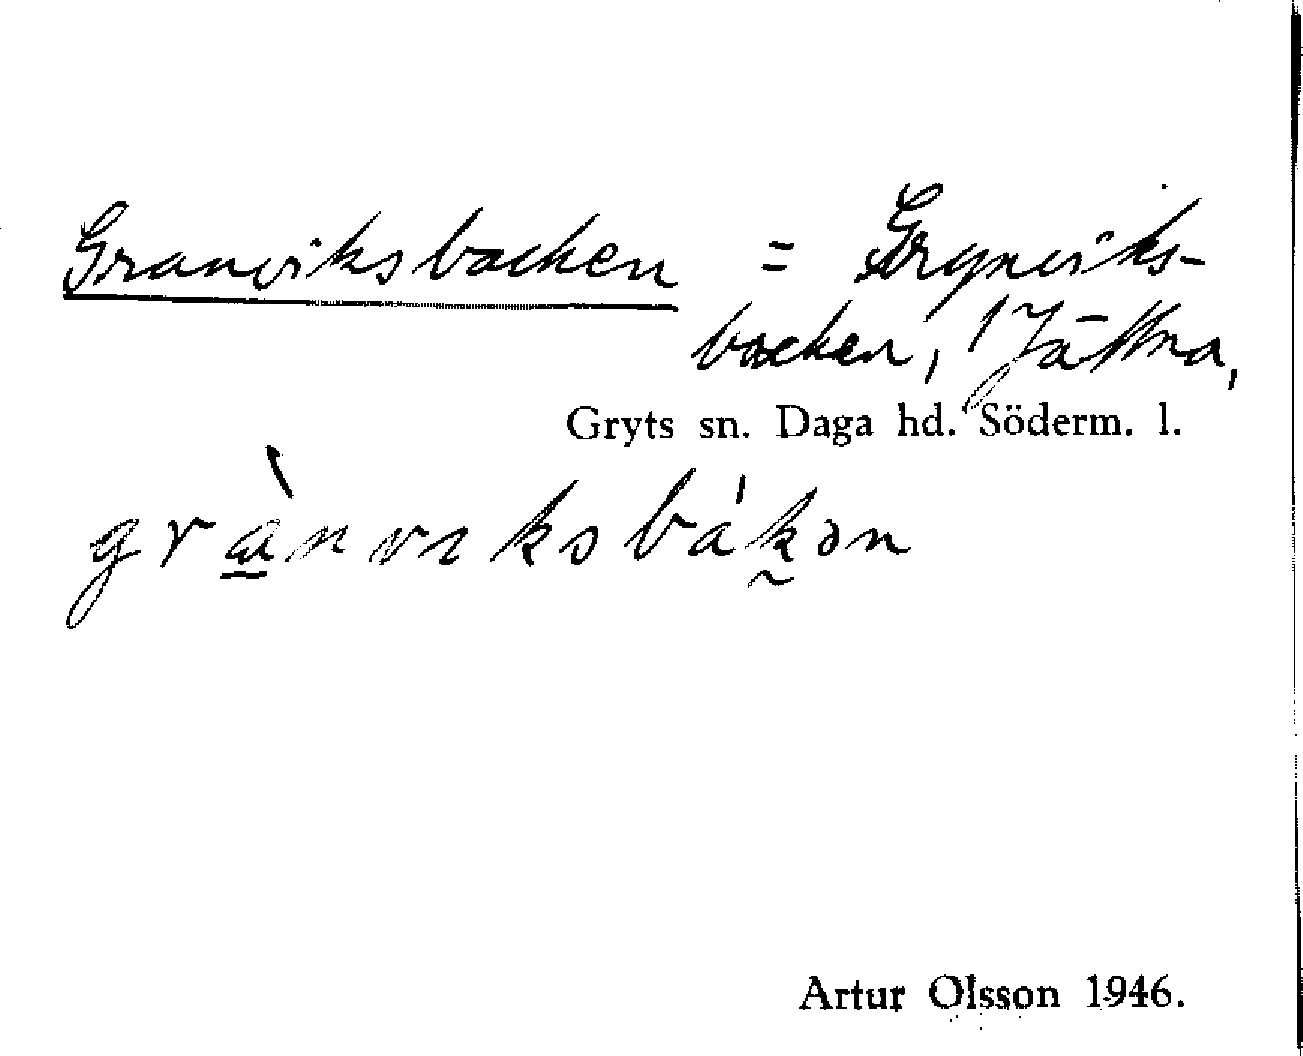 Granviksbacken = Grynviks-
backen, 1 Jättna,
Gryts sn. Daga hd. Söderm. l.
grànviksbákən
Artur Olsson 1946.